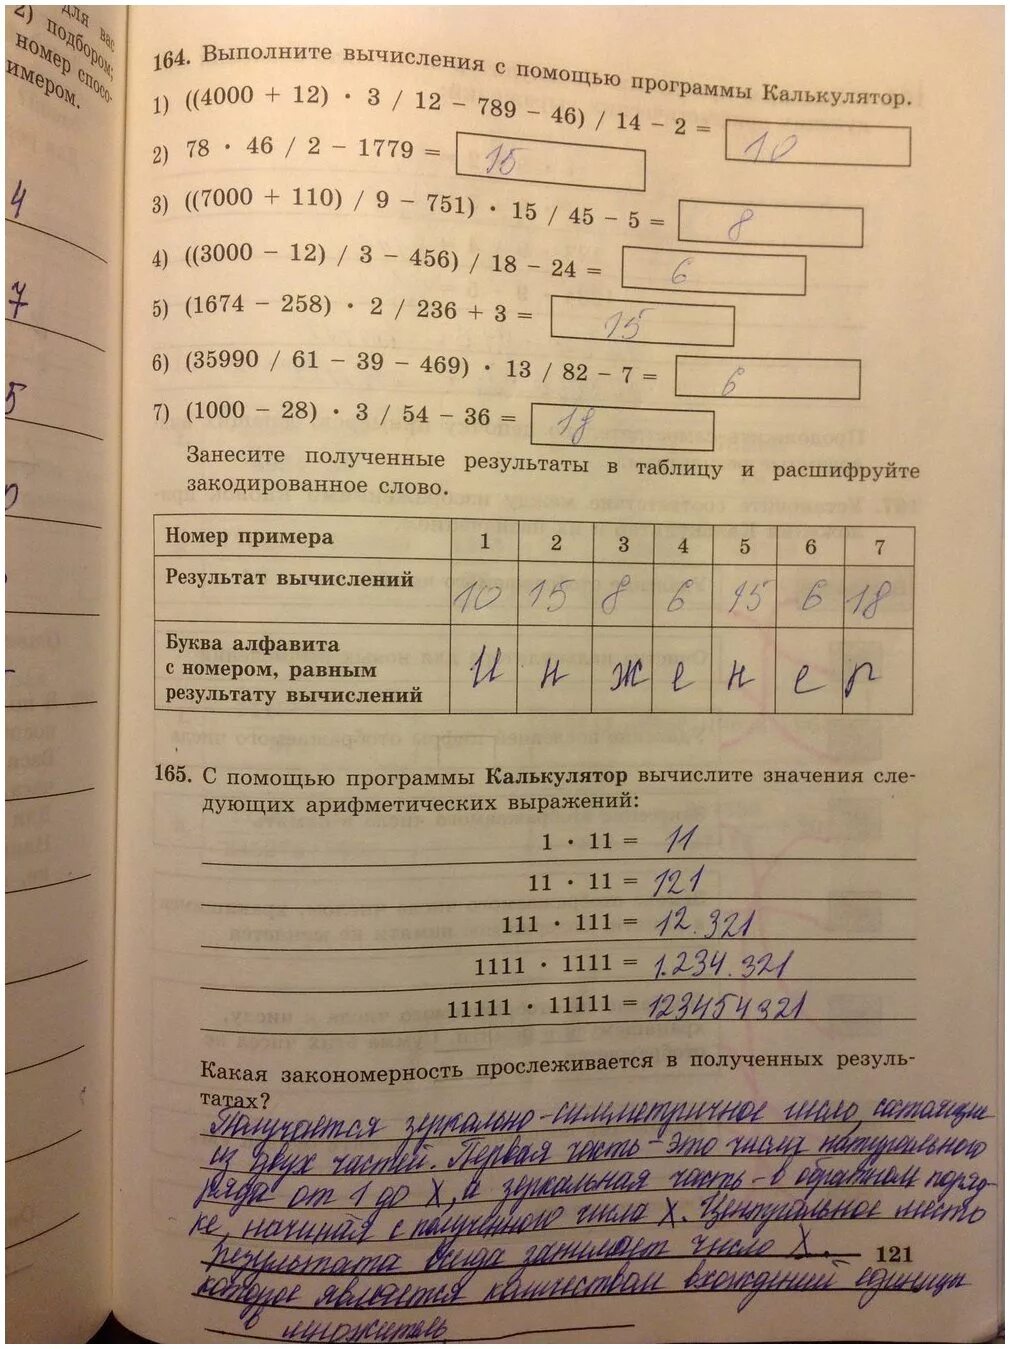 для вас
2) подбором;
номер спосо-
имером.
4
7
5
0
164. Выполните вычисления с помощью программы Калькулятор.
1) ((4000 + 12) · 3 / 12 − 789 − 46) / 14 − 2 = 10
2) 78 · 46 / 2 − 1779 = 15
3) ((7000 + 110) / 9 − 751) · 15 / 45 − 5 = 8
4) ((3000 − 12) / 3 − 456) / 18 − 24 = 6
5) (1674 − 258) · 2 / 236 + 3 = 15
6) (35990 / 61 − 39 − 469) · 13 / 82 − 7 = 6
7) (1000 − 28) · 3 / 54 − 36 = 18
Занесите полученные результаты в таблицу и расшифруйте
закодированное слово.
Номер примера 1 2 3 4 5 6 7
Результат вычислений 10 15 8 6 15 6 18
Буква алфавита
с номером, равным
результату вычислений
и н ж е н е р
165. С помощью программы Калькулятор вычислите значения сле-
дующих арифметических выражений:
1 · 11 = 11
11 · 11 = 121
111 · 111 = 12.321
1111 · 1111 = 1.234.321
11111 · 11111 = 123454321
Какая закономерность прослеживается в полученных резуль-
татах?
Получается зеркально-симметричное число, состоящие
из двух частей. Первая часть - это числа натурального
ряда от 1 до X, а зеркальная часть - в обратном поряд-
ке, начиная с полученного числа X. Центральное место
результата всегда занимает число X,
которое является количеством вхождений единицы
в множитель
121